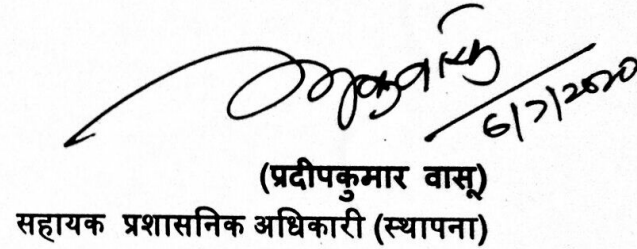 6/7/2020
(प्रदीपकुमार वासू)
सहायक प्रशासनिक अधिकारी (स्थापना)